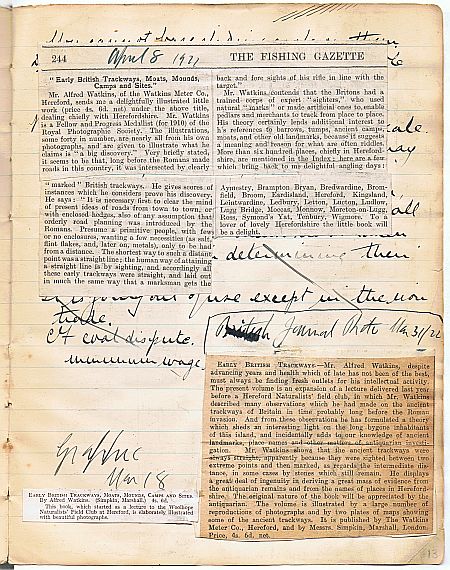 244 April 8 1922 THE FISHING GAZETTE
"Early British Trackways, Moats, Mounds,
Camps and Sites."
Mr. Alfred Watkins, of the Watkins Meter Co.,
Hereford, sends me a delightfully illustrated little
work (price 4s. 6d. net) under the above title,
dealing chiefly with Herefordshire. Mr. Watkins
is a Fellow and Progress Medallist (for 1910) of the
Royal Photographic Society. The illustrations,
some forty in number, are nearly all from his own
photographs, and are given to illustrate what he
claims is "a big discovery." Very briefly stated,
it seems to be that, long before the Romans made
roads in this country, it was intersected by clearly
"marked" British trackways. He gives scores of
instances which he considers prove his discovery.
He says: "It is necessary first to clear the mind
of present ideas of roads from town to town, or
with enclosed hedges, also of any assumption that
orderly road planning was introduced by the
Romans. Presume a primitive people, with few
or no enclosures, wanting a few necessities (as salt,
flint flakes, and, later on, metals), only to be had
from a distance. The shortest way to such a distant
point was a straight line; the human way of attaining
a straight line is by sighting, and accordingly all
these early trackways were straight, and laid out
in much the same way that a marksman gets the
back and fore sights of his rifle in line with the
target."
Mr. Watkins contends that the Britons had a
trained corps of expert "sighters," who used
natural "marks" or made artificial ones to enable
pedlars and merchants to track from place to place.
His theory certainly lends additional interest to
his references to barrows, tumps, ancient camps,
moats, and other old landmarks, because it suggests
a meaning and reason for what are often riddles.
More than six hundred places, chiefly in Hereford-
shire, are mentioned in the Index; here are a few
which bring back to me delightful angling days:
Aymestry, Brampton Bryan, Bredwardine, Brom-
field, Broom, Eardisland, Hereford, Kingsland,
Leintwardine, Ledbury, Letton, Lucton, Ludlow,
Lugg Bridge, Moccas, Mocktree, Moreton-on-Lugg,
Ross, Symond's Yat, Tenbury, Wigmore. To a
lover of lovely Herefordshire the little book will
be a delight.
all
determine then
except in the non
trade.
Cf coal dispute.
minimum wage.
British Journal Photo Mar 31/22
EARLY BRITISH TRACKWAYS.—Mr. Alfred Watkins, despite
advancing years and health which of late has not been of the best,
must always be finding fresh outlets for his intellectual activity.
The present volume is an expansion of a lecture delivered last year
before a Hereford Naturalists' field club, in which Mr. Watkins
described many observations which he had made on the ancient
trackways of Britain in time probably long before the Roman
invasion. And from these observations he has formulated a theory
which sheds an interesting light on the long bygone inhabitants
of this island, and incidentally adds to our knowledge of ancient
landmarks, place names and other matters of antiquarian investi-
gation. Mr. Watkins shows that the ancient trackways were
always straight, apparently because they were sighted between two
extreme points and then marked, as regards the intermediate dis-
tance, in some cases by stones which still remain. He displays
a great deal of ingenuity in deriving a great mass of evidence from
the antiquarian remains and from the names of places in Hereford-
shire. The original nature of the book will be appreciated by the
antiquarian. The volume is illustrated by a large number of
reproductions of photographs and by two plates of maps showing
some of the ancient trackways. It is published by The Watkins
Meter Company, Hereford, and by Messrs. Simpkin, Marshall, London.
Price, 4s. 6d. net.
Mar 18
EARLY BRITISH TRACKWAYS, MOATS, MOUNDS, CAMPS AND SITES.
By Alfred Watkins. (Simpkin, Marshall.) 4s. 6d.
This book, which started as a lecture to the Woolhope
Naturalists' Field Club at Hereford, is elaborately illustrated
with beautiful photographs.
13